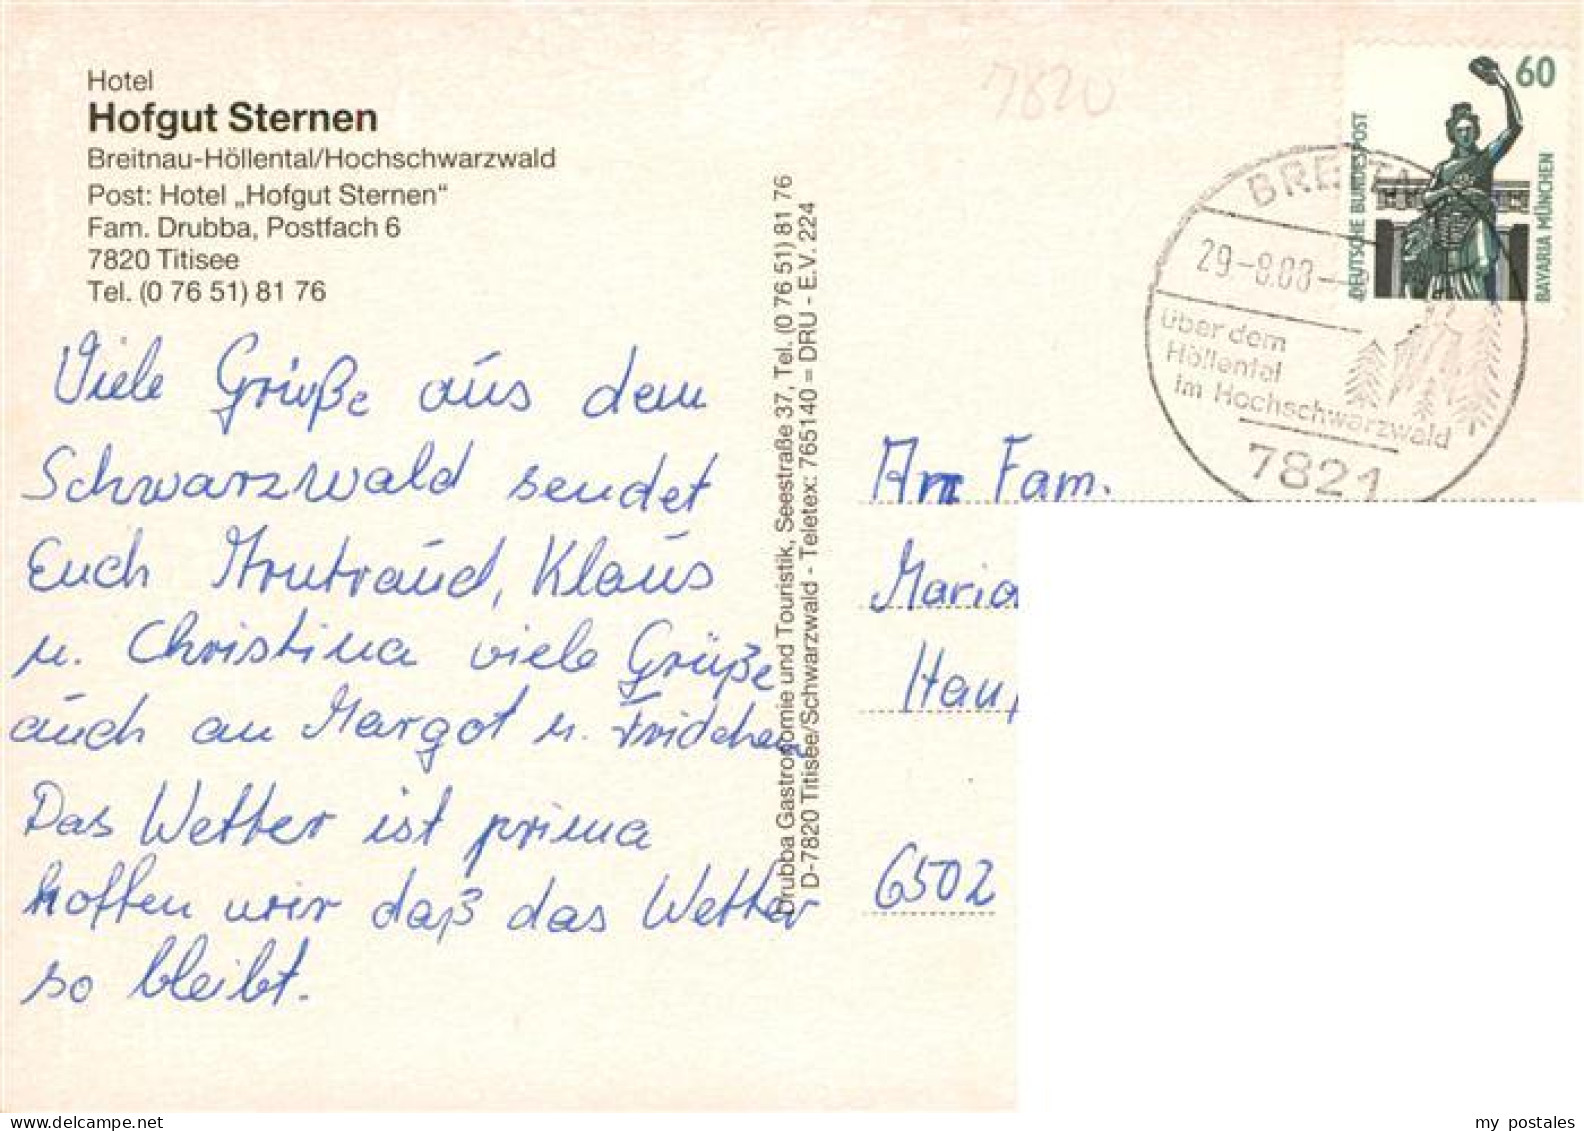 Hotel
Hofgut Sternen
Breitnau-Höllental/Hochschwarzwald
Post: Hotel „Hofgut Sternen“
Fam. Drubba, Postfach 6
7820 Titisee
Tel. (0 76 51) 81 76
Viele Grüße aus dem
Schwarzwald sendet
Euch Klaus
u. Christina viele Grüße
auch an Margot u. Fridchen
Das Wetter ist prima
hoffen wir daß das Wetter
so bleibt.
Drubba Gastronomie und Touristik, Seestraße 37, Tel. (0 76 51) 81 76
D-7820 Titisee/Schwarzwald - Teletex: 765140 = DRU - E.V. 224
7820
60
DEUTSCHE BUNDESPOST
BAVARIA MÜNCHEN
BREITN
29-8.88
über dem
Höllental
im Hochschwarzwald
7821
An Fam.
Maria
Hau
6502
my postales
https://www.delcampe.net